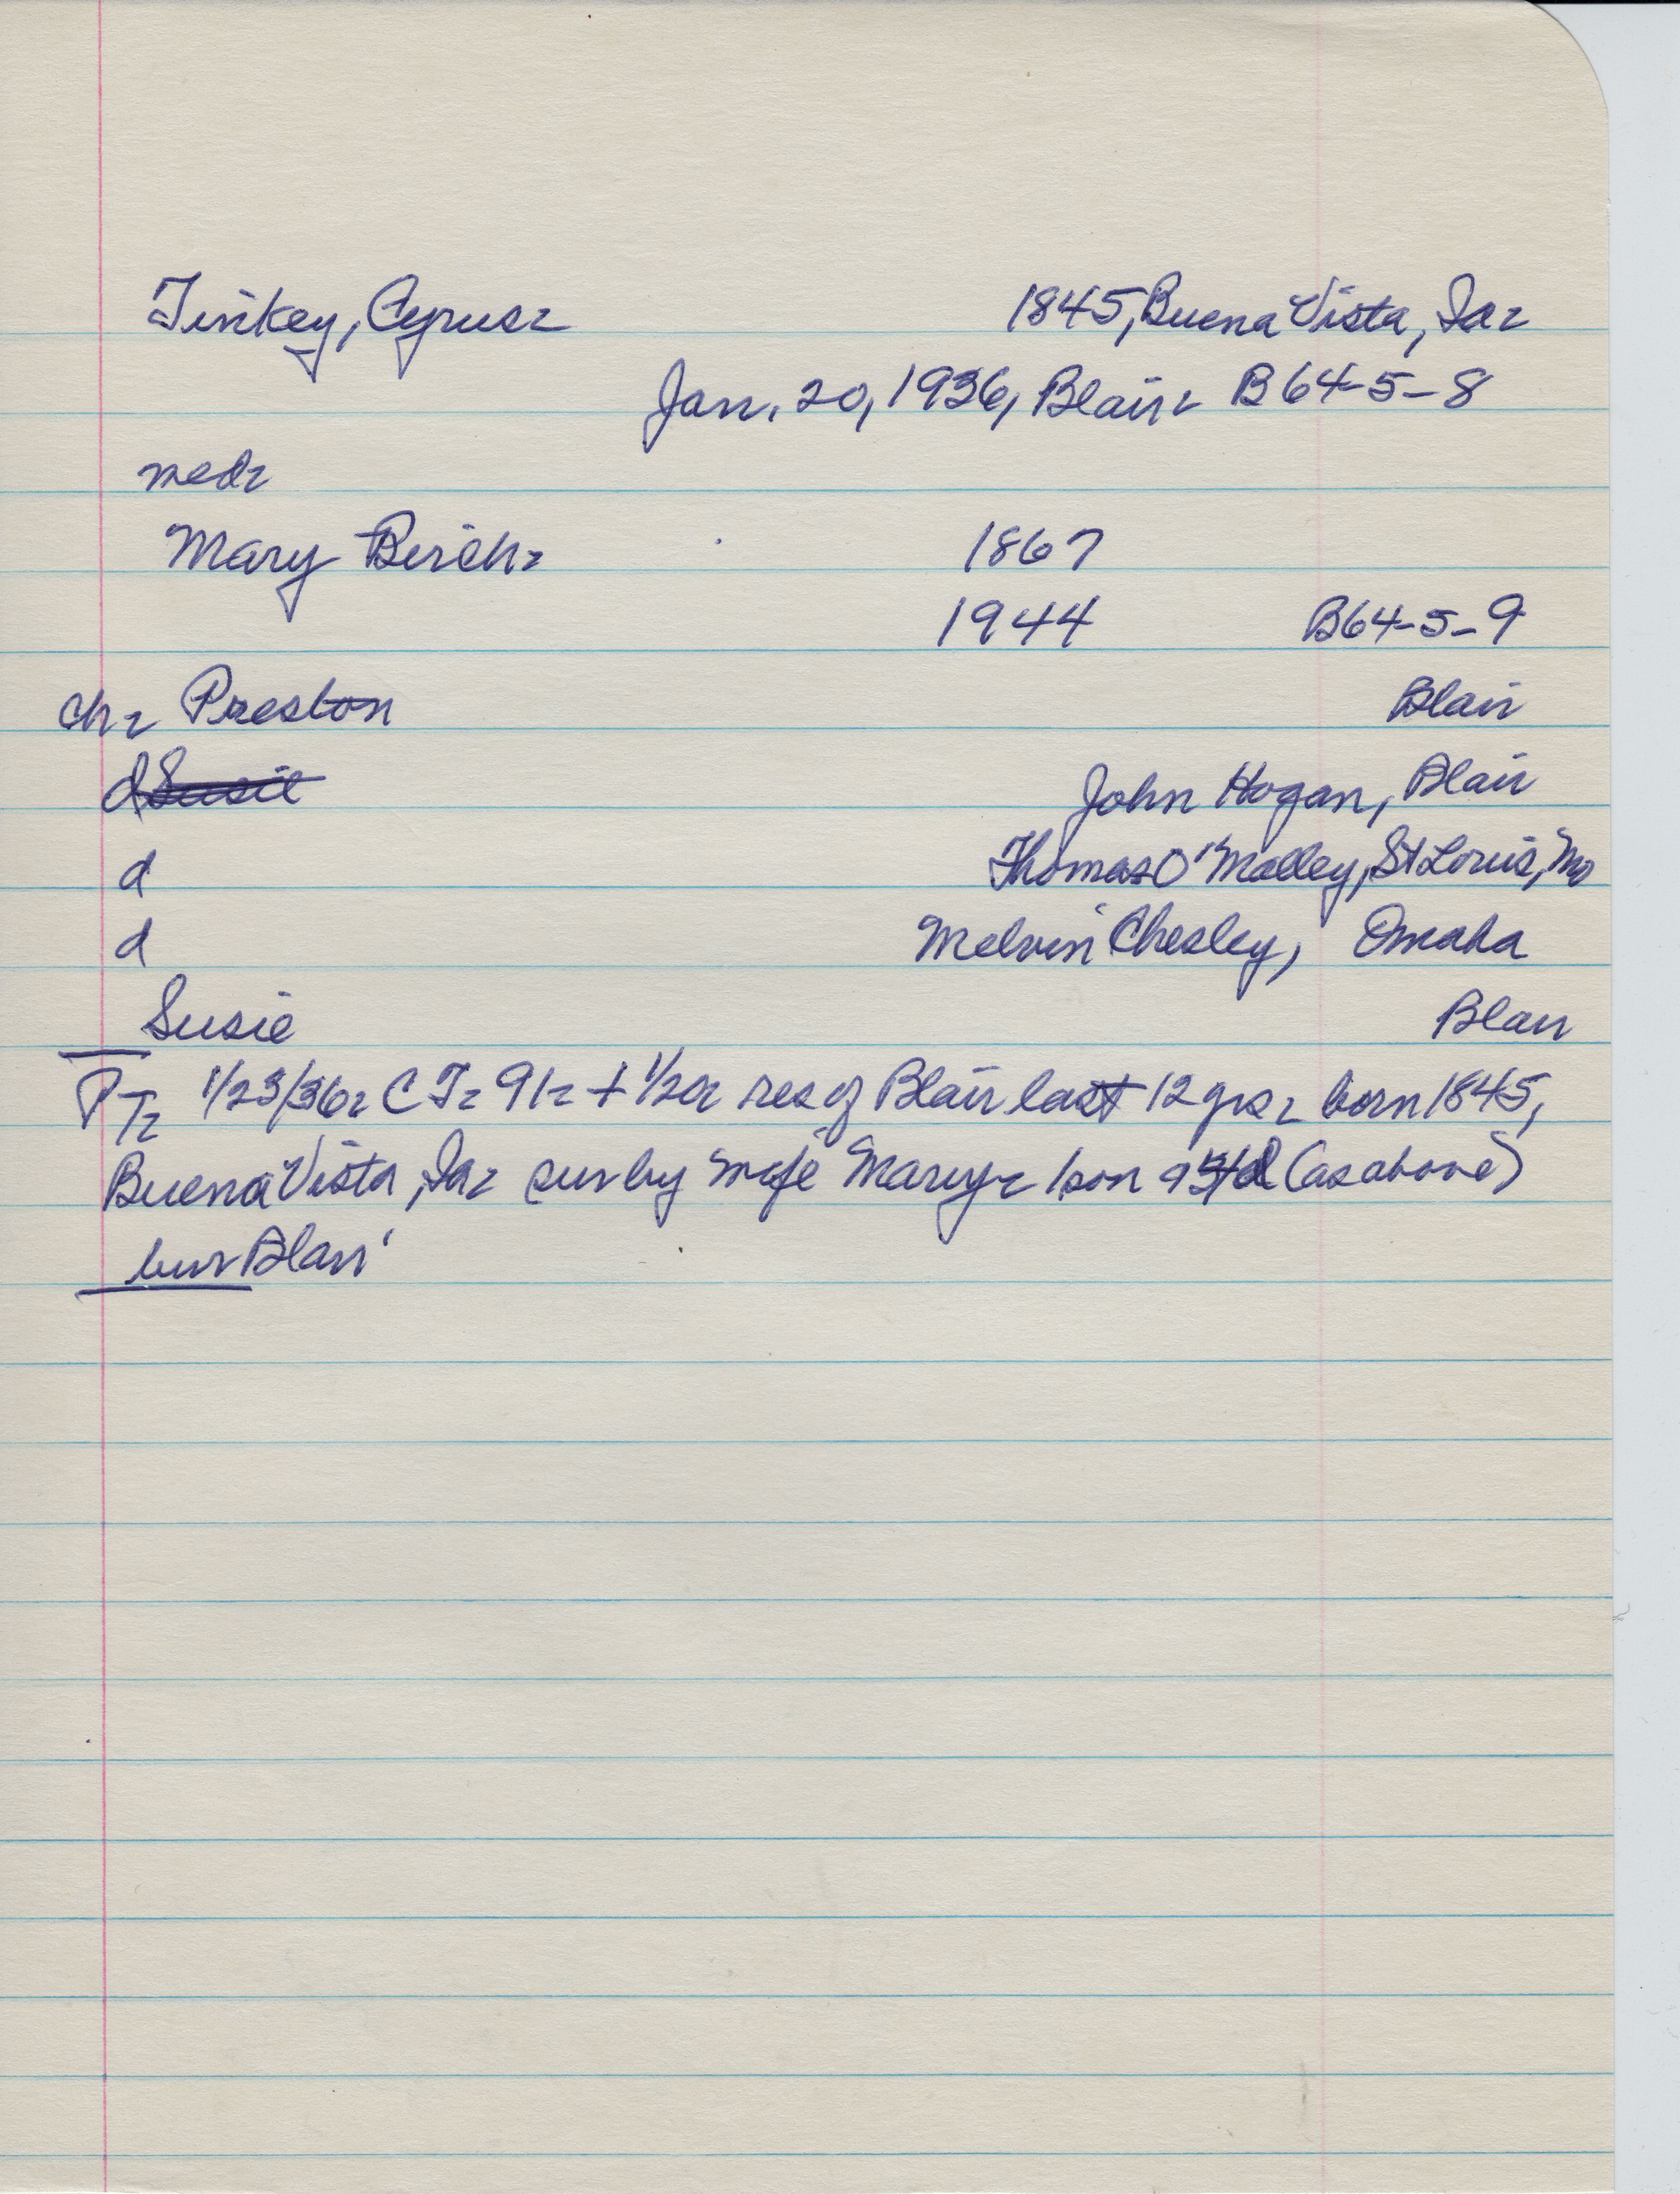 Tinkey, Cyrus 1845, Buena Vista, Ia
Jan. 20, 1936, Blair B64-5-8
med
Mary Birch 1867
1944 B64-5-9
ch Preston Blair
d Susie John Hogan, Blair
d Thomas O'Malley, St Louis, Mo
d Melvin Chesley, Omaha
Susie Blair
PT 1/23/36 CT 91 + 1/2 res of Blair last 12 yrs born 1845,
Buena Vista, Ia sur by wife Mary 1 son 4 d (as above)
bur Blair